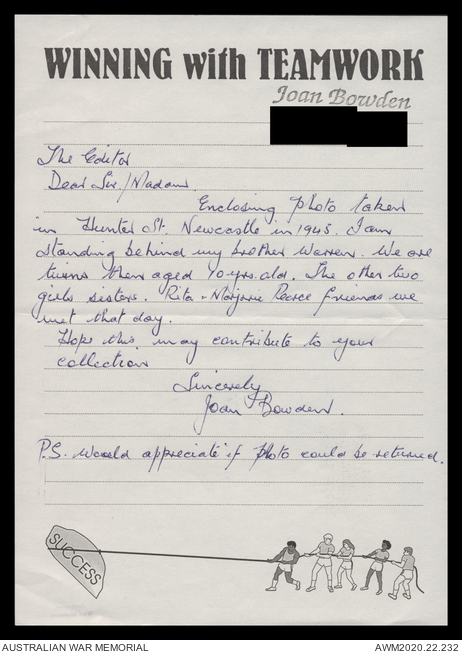 WINNING with TEAMWORK
Joan Bowden
The Editor
Dear Sir/Madam,
Enclosing photo taken
in Hunter St. Newcastle in 1945. I am
standing behind my brother Warren. We are
twins then aged 10 yrs. old. The other two
girls sisters. Rita & Marjorie Pearce friends we
met that day.
Hope this may contribute to your
collection
Sincerely
Joan Bowden.
P.S. Would appreciate if photo could be returned.
SUCCESS
AUSTRALIAN WAR MEMORIAL
AWM2020.22.232